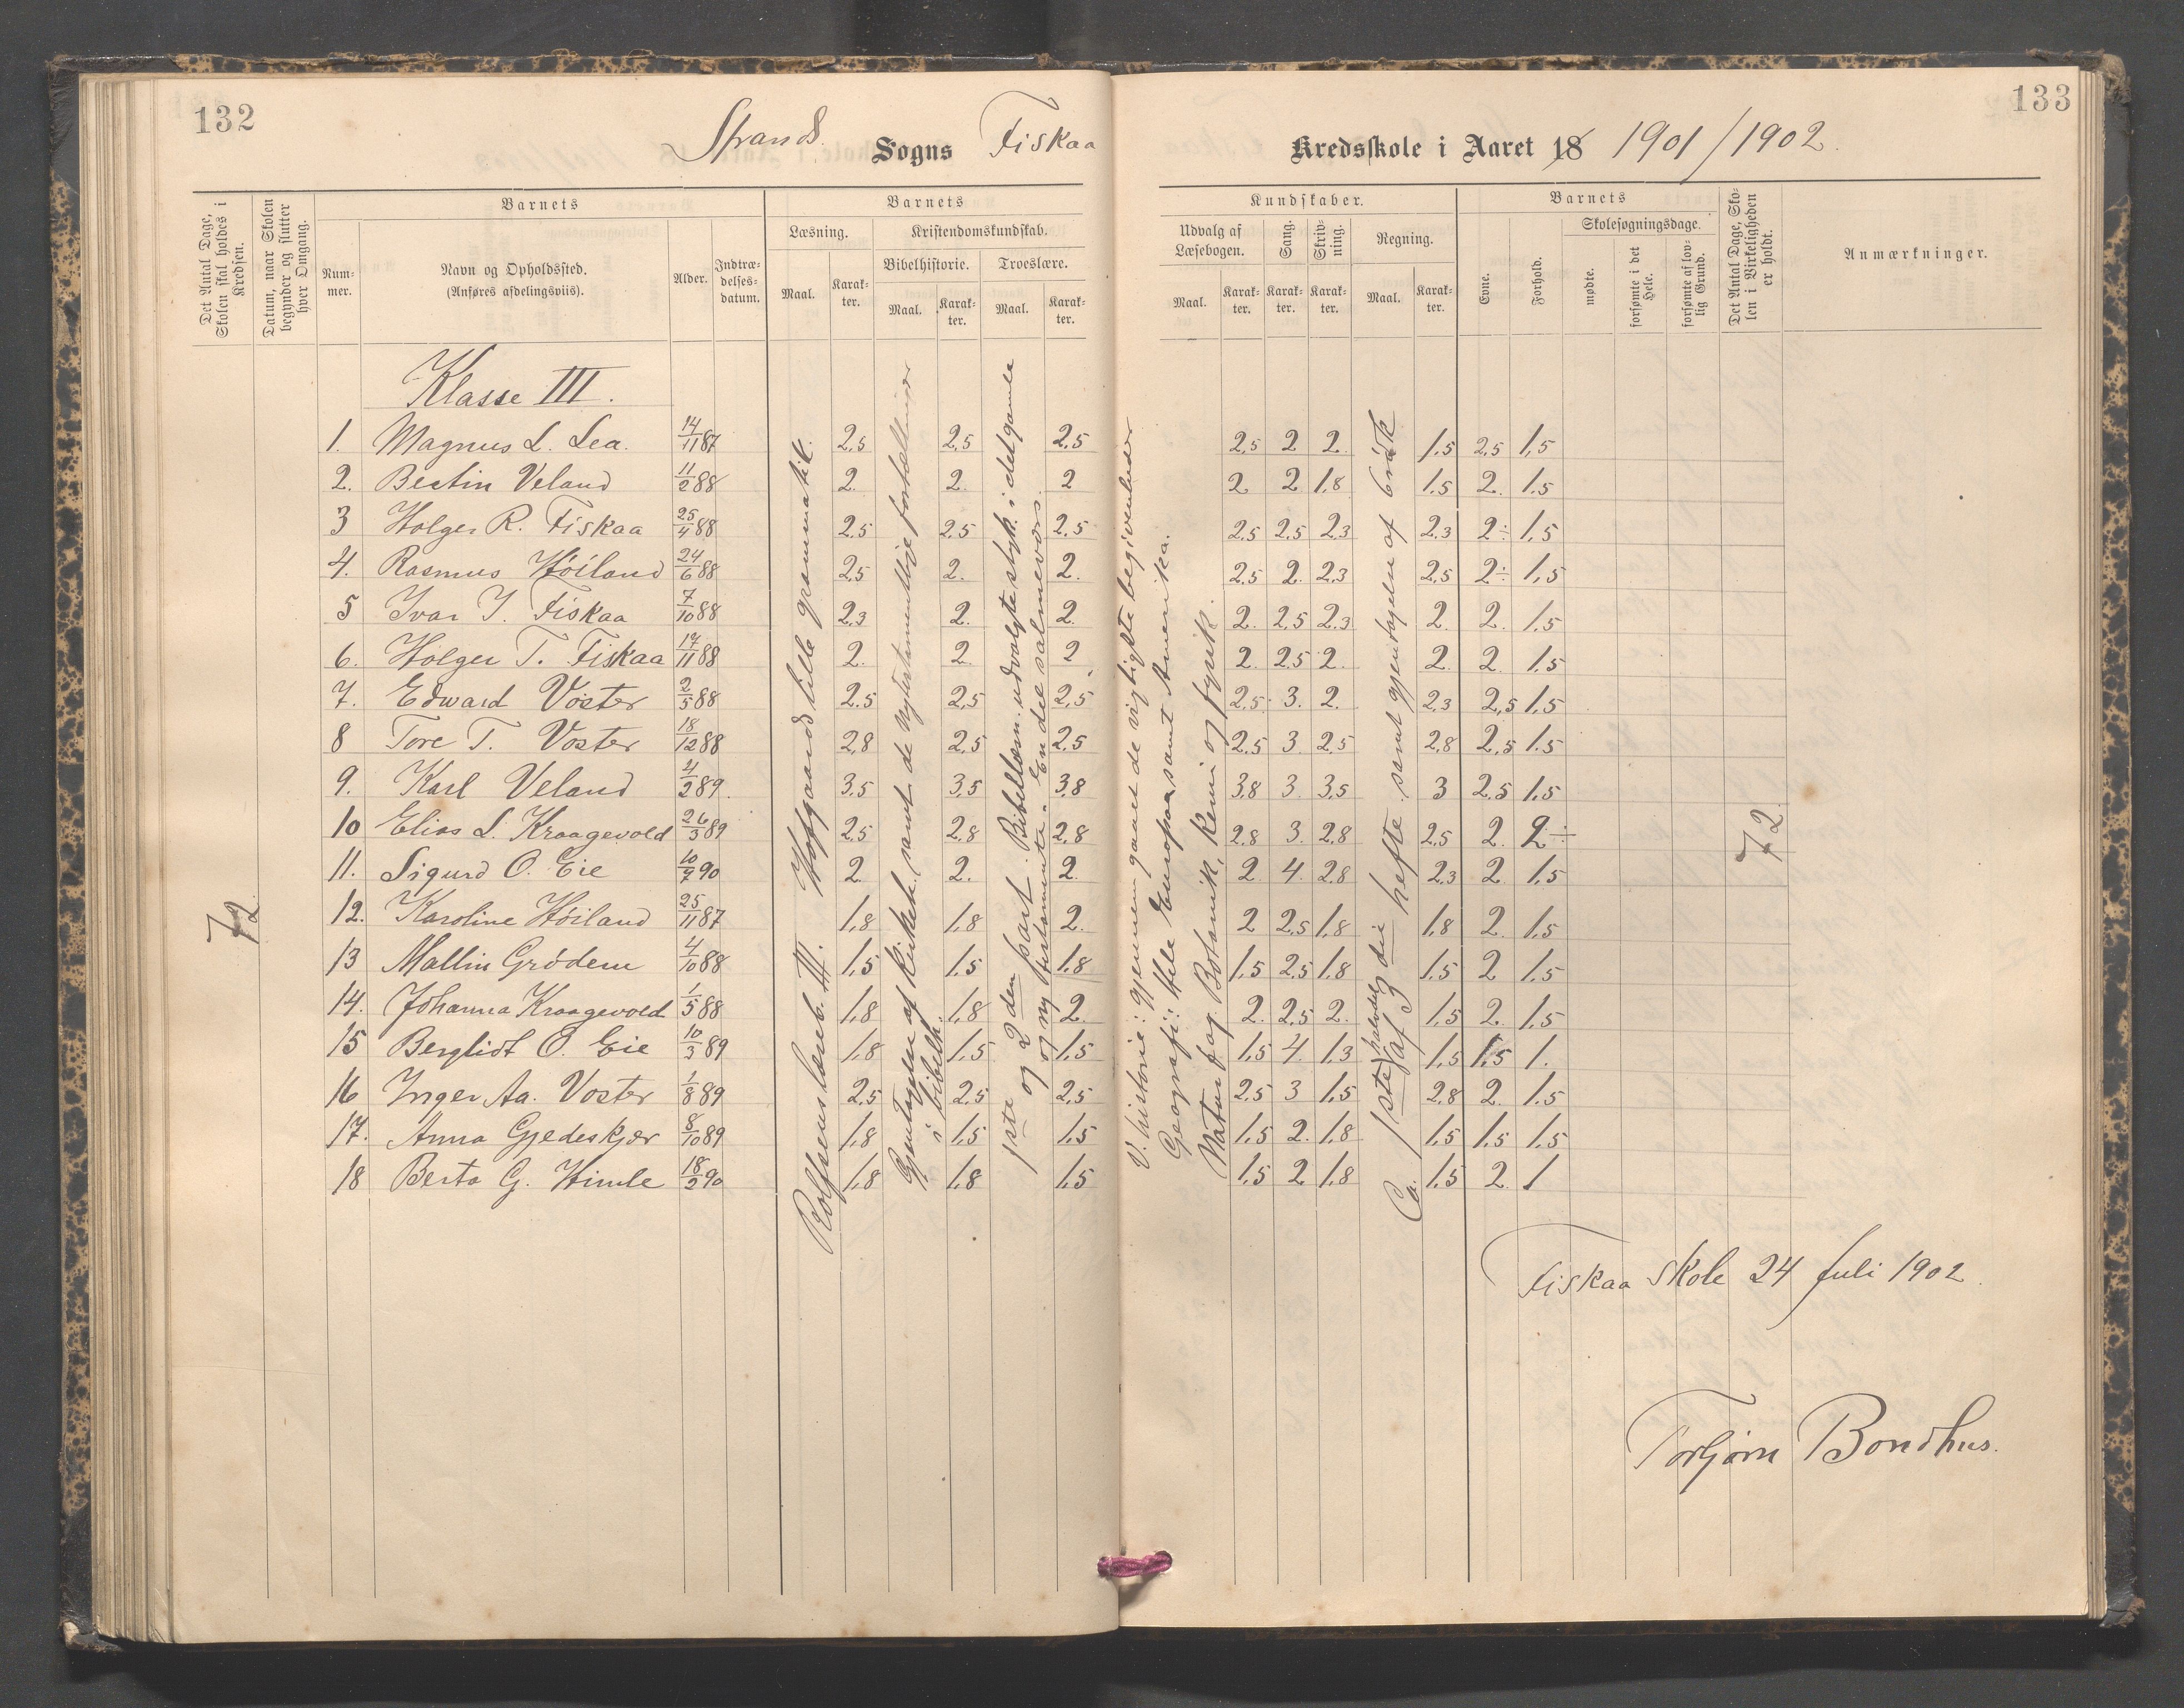 132
Strands Sogns Fiskaa
Det Antal Dage, Skolen skal holdes i Kredsen.
Datum, naar Skolen begynder og slutter hver Omgang.
Barnets
Barnets
Nummer.
Navn og Opholdssted.
(Anføres afdelingsviis).
Alder.
Indtrædelsesdatum.
Læsning.
Kristendomskundskab.
Bibelhistorie.
Troeslære.
Maal. Karakter. Maal. Karakter. Maal. Karakter.
Klasse III.
1. Magnus L. Lea. 14/11 87 2,5 2,5 2,5
2. Bertin Veland 11/2 88 2. 2. 2
3 Holger R. Fiskaa 25/4 88 2.5 2,5 2,5
4. Rasmus Høiland 24/6 88 2,5 2. 2.
5 Ivar I. Fiskaa 7/10 88 2,3 2. 2.
6. Holger T. Fiskaa 17/11 88 2. 2. 2
7. Edward Voster 2/5 88 2.5 2,5 2,5
8 Tore T. Voster 18/12 88 2,8 2,5 2,5
9. Karl Veland 4/2 89. 3,5 3,5 3,8
10 Elias L. Kraagevold 26/3 89 2,5 2,8 2,8
11. Sigurd O. Eie 10/7 90 2 2. 2.
12. Karoline Høiland 25/11 87 1,8 1,8 2.
13 Mallin Grødem 4/10 88 1,5 1,5 1,8
14. Johanna Kraagevold 1/5 88 1,8 1,8 2.
15 Bergliot O. Eie 10/3 89 1,8 1,5 1,5
16 Inger Aa. Voster 1/8 89 2,5 2,5 2,5
17. Anna Gjedeskjær 8/10 89 1,8 1,5 1,5
18 Berta G. Himle 18/2 90 1,8 1,8 1,5
72.
Rolfsens læseb. III. Hofgaards lille grammatik.
Gjentagelse af kirkeh. samt de nytestamentlige fortællinger
i bibelh.
1ste og 2den part. Bibellæsn. udvalgte styk. i det gamle
og ny testamente. En del salmevers.
133
Kredsskole i Aaret 18 1901/1902.
Kundskaber.
Barnets
Udvalg af Læsebogen.
Sang.
Skrivning.
Regning.
Evne.
Forhold.
Skolesøgningsdage.
mødte.
forsømte i det Hele.
forsømte af lovlig Grund.
Det Antal Dage, Skolen i Virkeligheden er holdt.
Anmærkninger.
Maal. Karakter. Karakter. Karakter. Maal. Karakter.
2,5 2 2. 1.5 2,5 1,5
2 2 1,8 1.5 2. 1.5
2,5 2,5 2,3 2,3 2÷ 1,5
2.5 2. 2,3 2,5 2÷ 1,5
2. 2,5 2,3 2. 2. 1.5
2. 2,5 2. 2. 2. 1.5
2,5 3. 2. 2,3 2,5 1.5
2,5 3. 2,5 2,8 2,5 1.5
3,8 3 3,5 3 2,5 1.5
2.8 3. 2,8 2,5 2. 2÷
2 4. 2,8 2,3 2 1.5
2 2,5 1,8 1,8 2. 1.5
1,5 2,5 1,8 1,5 2 1.5
2. 2,5 2. 1,5 2. 1.5
1,5 4. 1,3 1,5 1,5 1.
2,5 3 1,5 2,8 2. 1.5
1,5 2. 1,8 1,5 1,5 1,5
1,5 2 1,8 1.5 2. 1
V. historie: gjennemgaaet de vigtigste begivenheder
Geografi: Hele Europa, samt Amerika.
Naturfag. Botanik, kemi og fysik.
Ca. 1ste halvdel af 3die hefte samt gjentagelse af brøk
72.
Fiskaa skole 24 juli 1902.
Torbjørn Bondhus.